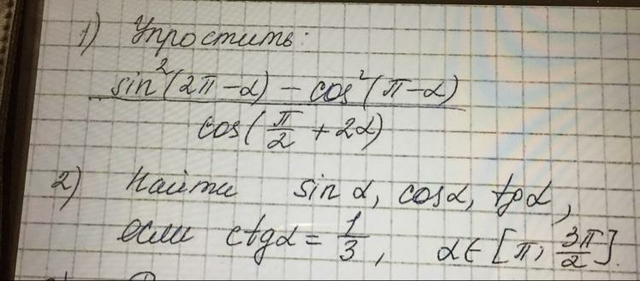 1) Упростить:
sin²(2π-α) - cos²(π-α)
cos(π/2 + 2α)
2) Найти sin α, cosα, tgα,
если ctgα = 1/3, α∈[π; 3π/2].